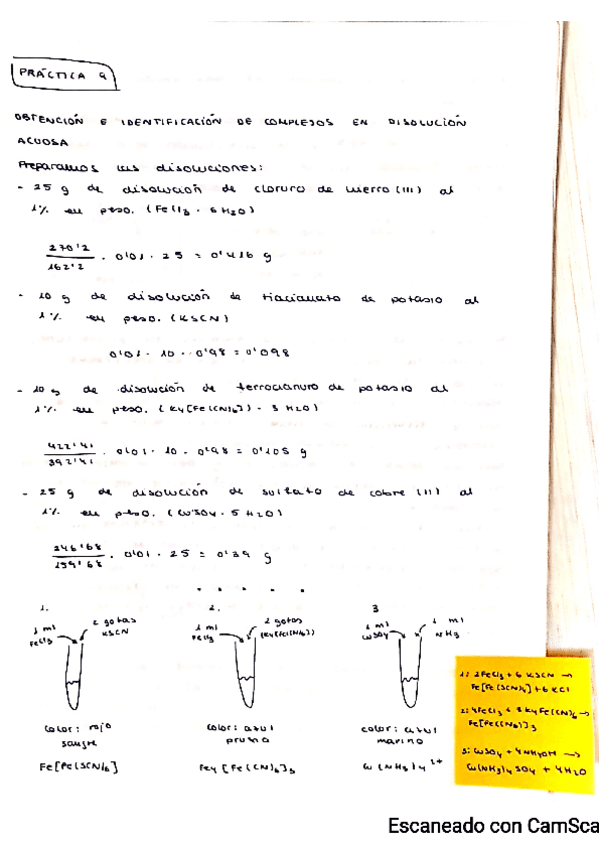 PRÁCTICA 9
OBTENCIÓN E IDENTIFICACIÓN DE COMPLEJOS EN DISOLUCIÓN
ACUOSA
Preparamos las disoluciones:
- 25 g de disolución de cloruro de hierro (III) al
1% en peso. (FeCl3 · 6 H2O)
270'2 / 162'2 · 0'01 · 25 = 0'416 g
- 10 g de disolución de tiocianato de potasio al
1% en peso. (KSCN)
0'01 · 10 · 0'98 = 0'098
- 10 g de disolución de ferrocianuro de potasio al
1% en peso. (K4[Fe(CN)6]) · 3 H2O)
422'41 / 392'41 · 0'01 · 10 · 0'98 = 0'105 g
- 25 g de disolución de sulfato de cobre (II) al
1% en peso. (CuSO4 · 5 H2O)
246'68 / 159'68 · 0'01 · 25 = 0'39 g
1. 2. 3
1 ml FeCl3 2 gotas KSCN
1 ml FeCl3 2 gotas (K4[Fe(CN)6])
1 ml CuSO4 1 ml NH3
color: rojo sangre
color: azul prusia
color: azul marino
Fe[Fe(SCN)6]
Fe4[Fe(CN)6]3
Cu(NH3)4 2+
1: 2FeCl3 + 6 KSCN →
Fe[Fe(SCN)6] + 6 KCl
2: 4FeCl3 + 3 K4Fe(CN)6 →
Fe[Fe(CN)6]3
3: CuSO4 + 4NH4OH →
Cu(NH3)4SO4 + 4H2O
Escaneado con CamSca